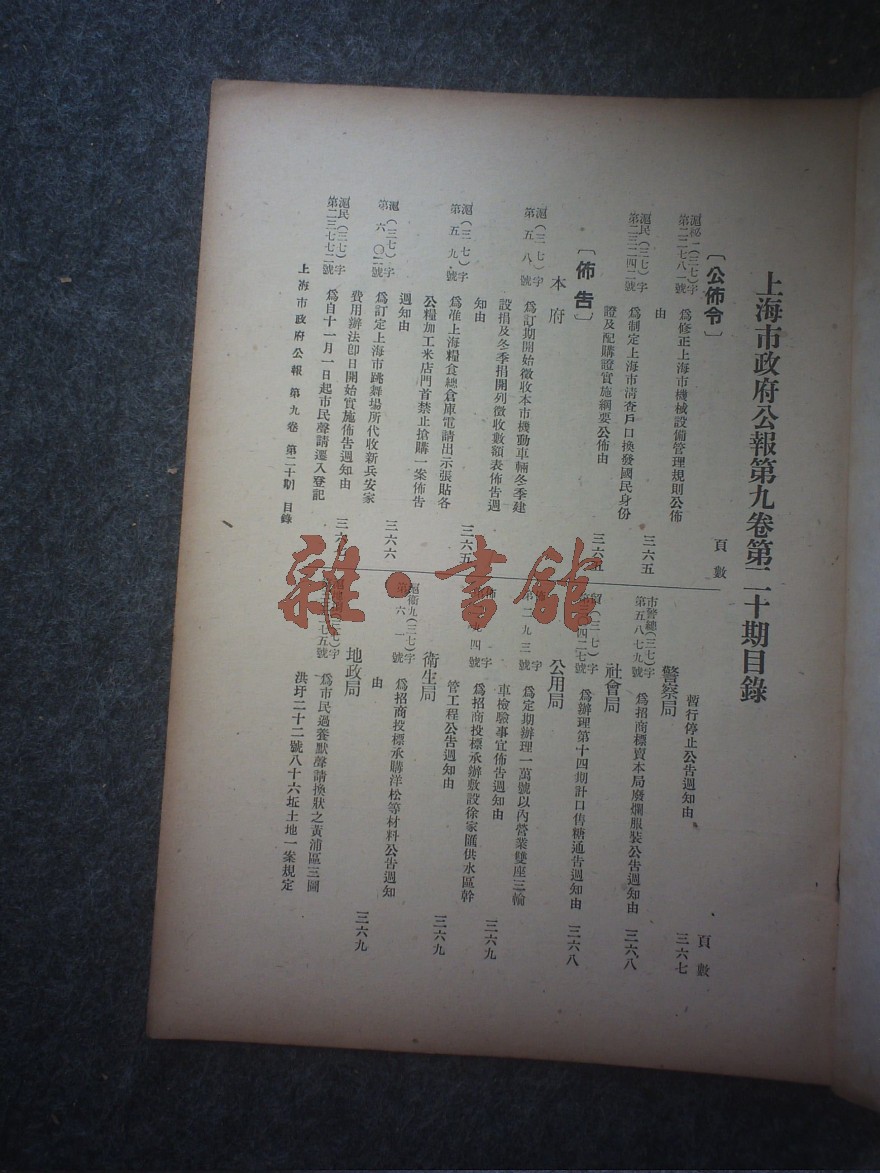 上海市政府公報第九卷第二十期目錄
頁數
〔公佈令〕
滬秘一(三七)字
第二二七八一號
爲修正上海市機械設備管理規則公佈
由
三六五
滬民(三七)字
第二三二四二號
爲制定上海市清查戶口換發國民身份
證及配購證實施綱要公佈由
三六五
〔佈告〕
本府
滬(三七)字
第五八號
爲訂期開始徵收本市機動車輛冬季建
設捐及冬季捐開列徵收數額表佈告週
知由
三六五
滬(三七)字
第五九號
爲准上海糧食總倉庫電請出示張貼各
公糧加工米店門首禁止搶購一案佈告
週知由
三六六
滬(三七)字
第六〇號
爲訂定上海市跳舞場所代收新兵安家
費用辦法卽日開始實施佈告週知由
三六
滬民(三七)字
第二三七七二號
爲自十一月一日起市民聲請遷入登記
上海市政府公報 第九卷 第二十期 目錄
頁數
暫行停止公告週知由
三六七
警察局
市警總(三七)字
第五八七九號
爲招商標賣本局廢爛服裝公告週知由
三六八
社會局
(三七)字
四二七號
爲辦理第十四期計口售糖通告週知由
三六八
公用局
字
二九三號
爲定期辦理一萬號以內營業雙座三輪
車檢驗事宜佈告週知由
三六九
佈 字
九四號
爲招商投標承辦敷設徐家匯供水區幹
管工程公告週知由
三六九
衛生局
滬衛九(三七)字
第六一號
爲招商投標承購洋松等材料公告週知
由
三六九
地政局
(三七)字
七五號
爲市民過養默聲請換狀之黃浦區三圖
洪圩二十二號八十六坵土地一案規定
雜·書館